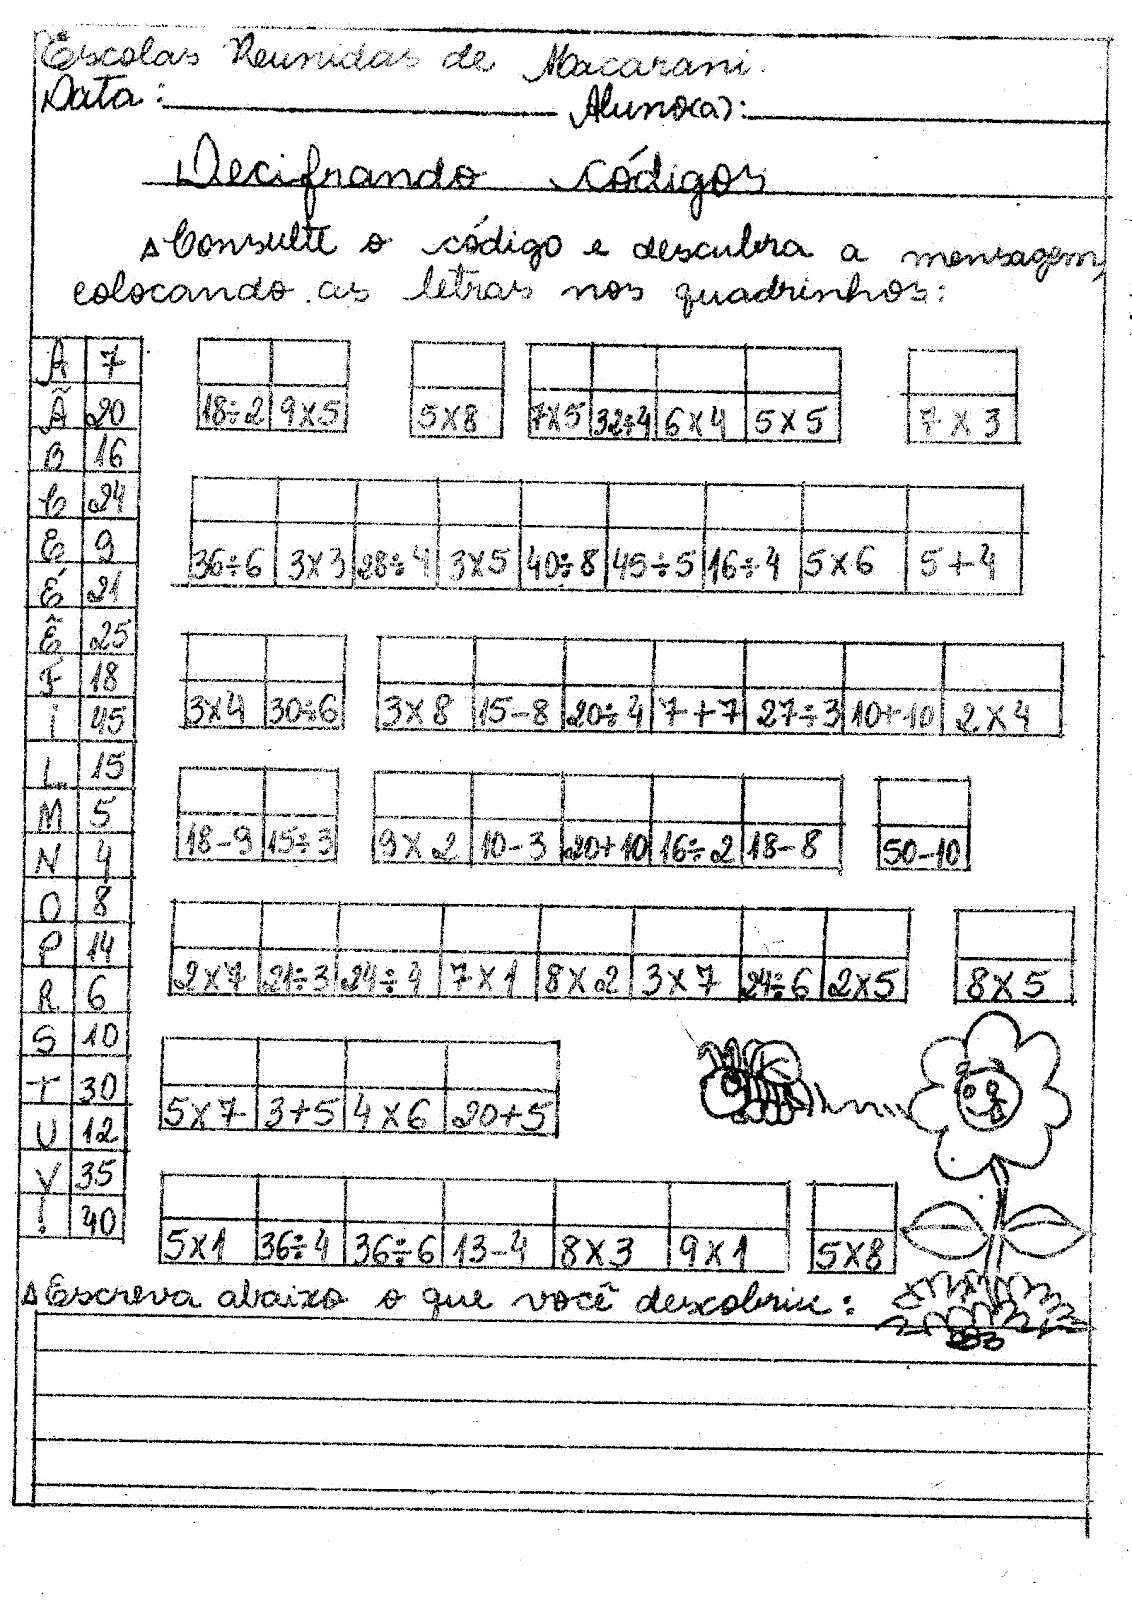 Escolas Reunidas de Macarani.
Data: Aluno(a):
Decifrando códigos
Consulte o código e descubra a mensagem,
colocando as letras nos quadrinhos:
A 7
Ã 20
B 16
C 24
E 9
É 21
Ê 25
F 18
I 45
L 15
M 5
N 4
O 8
P 14
R 6
S 10
T 30
U 12
V 35
! 40
18÷2 9x5 5x8 7x5 32÷4 6x4 5x5 7x3
36÷6 3x3 28÷4 3x5 40÷8 45÷5 16÷4 5x6 5+4
3x4 30÷6 3x8 15-8 20÷4 7+7 27÷3 10+10 2x4
18-9 15÷3 9x2 10-3 20+10 16÷2 18-8 50-10
2x7 21÷3 24÷4 7x1 8x2 3x7 24÷6 2x5 8x5
5x7 3+5 4x6 20+5
5x1 36÷4 36÷6 13-4 8x3 9x1 5x8
Escreva abaixo o que você descobriu: